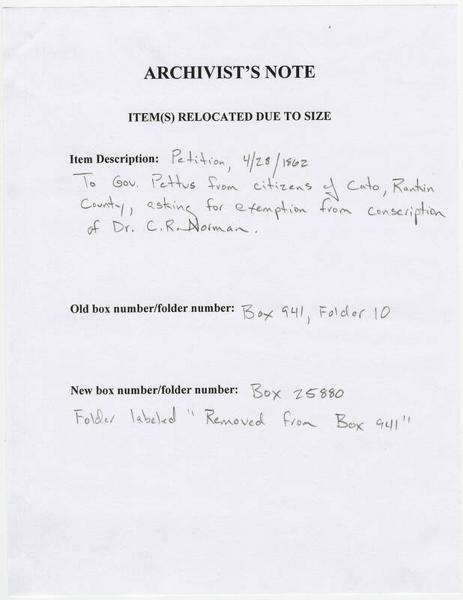 ARCHIVIST'S NOTE
ITEM(S) RELOCATED DUE TO SIZE
Item Description: Petition, 4/28/1862
To Gov. Pettus from citizens of Cato, Rankin
County, asking for exemption from conscription
of Dr. C.R. Norman.
Old box number/folder number: Box 941, Folder 10
New box number/folder number: Box 25880
Folder labeled "Removed from Box 941"